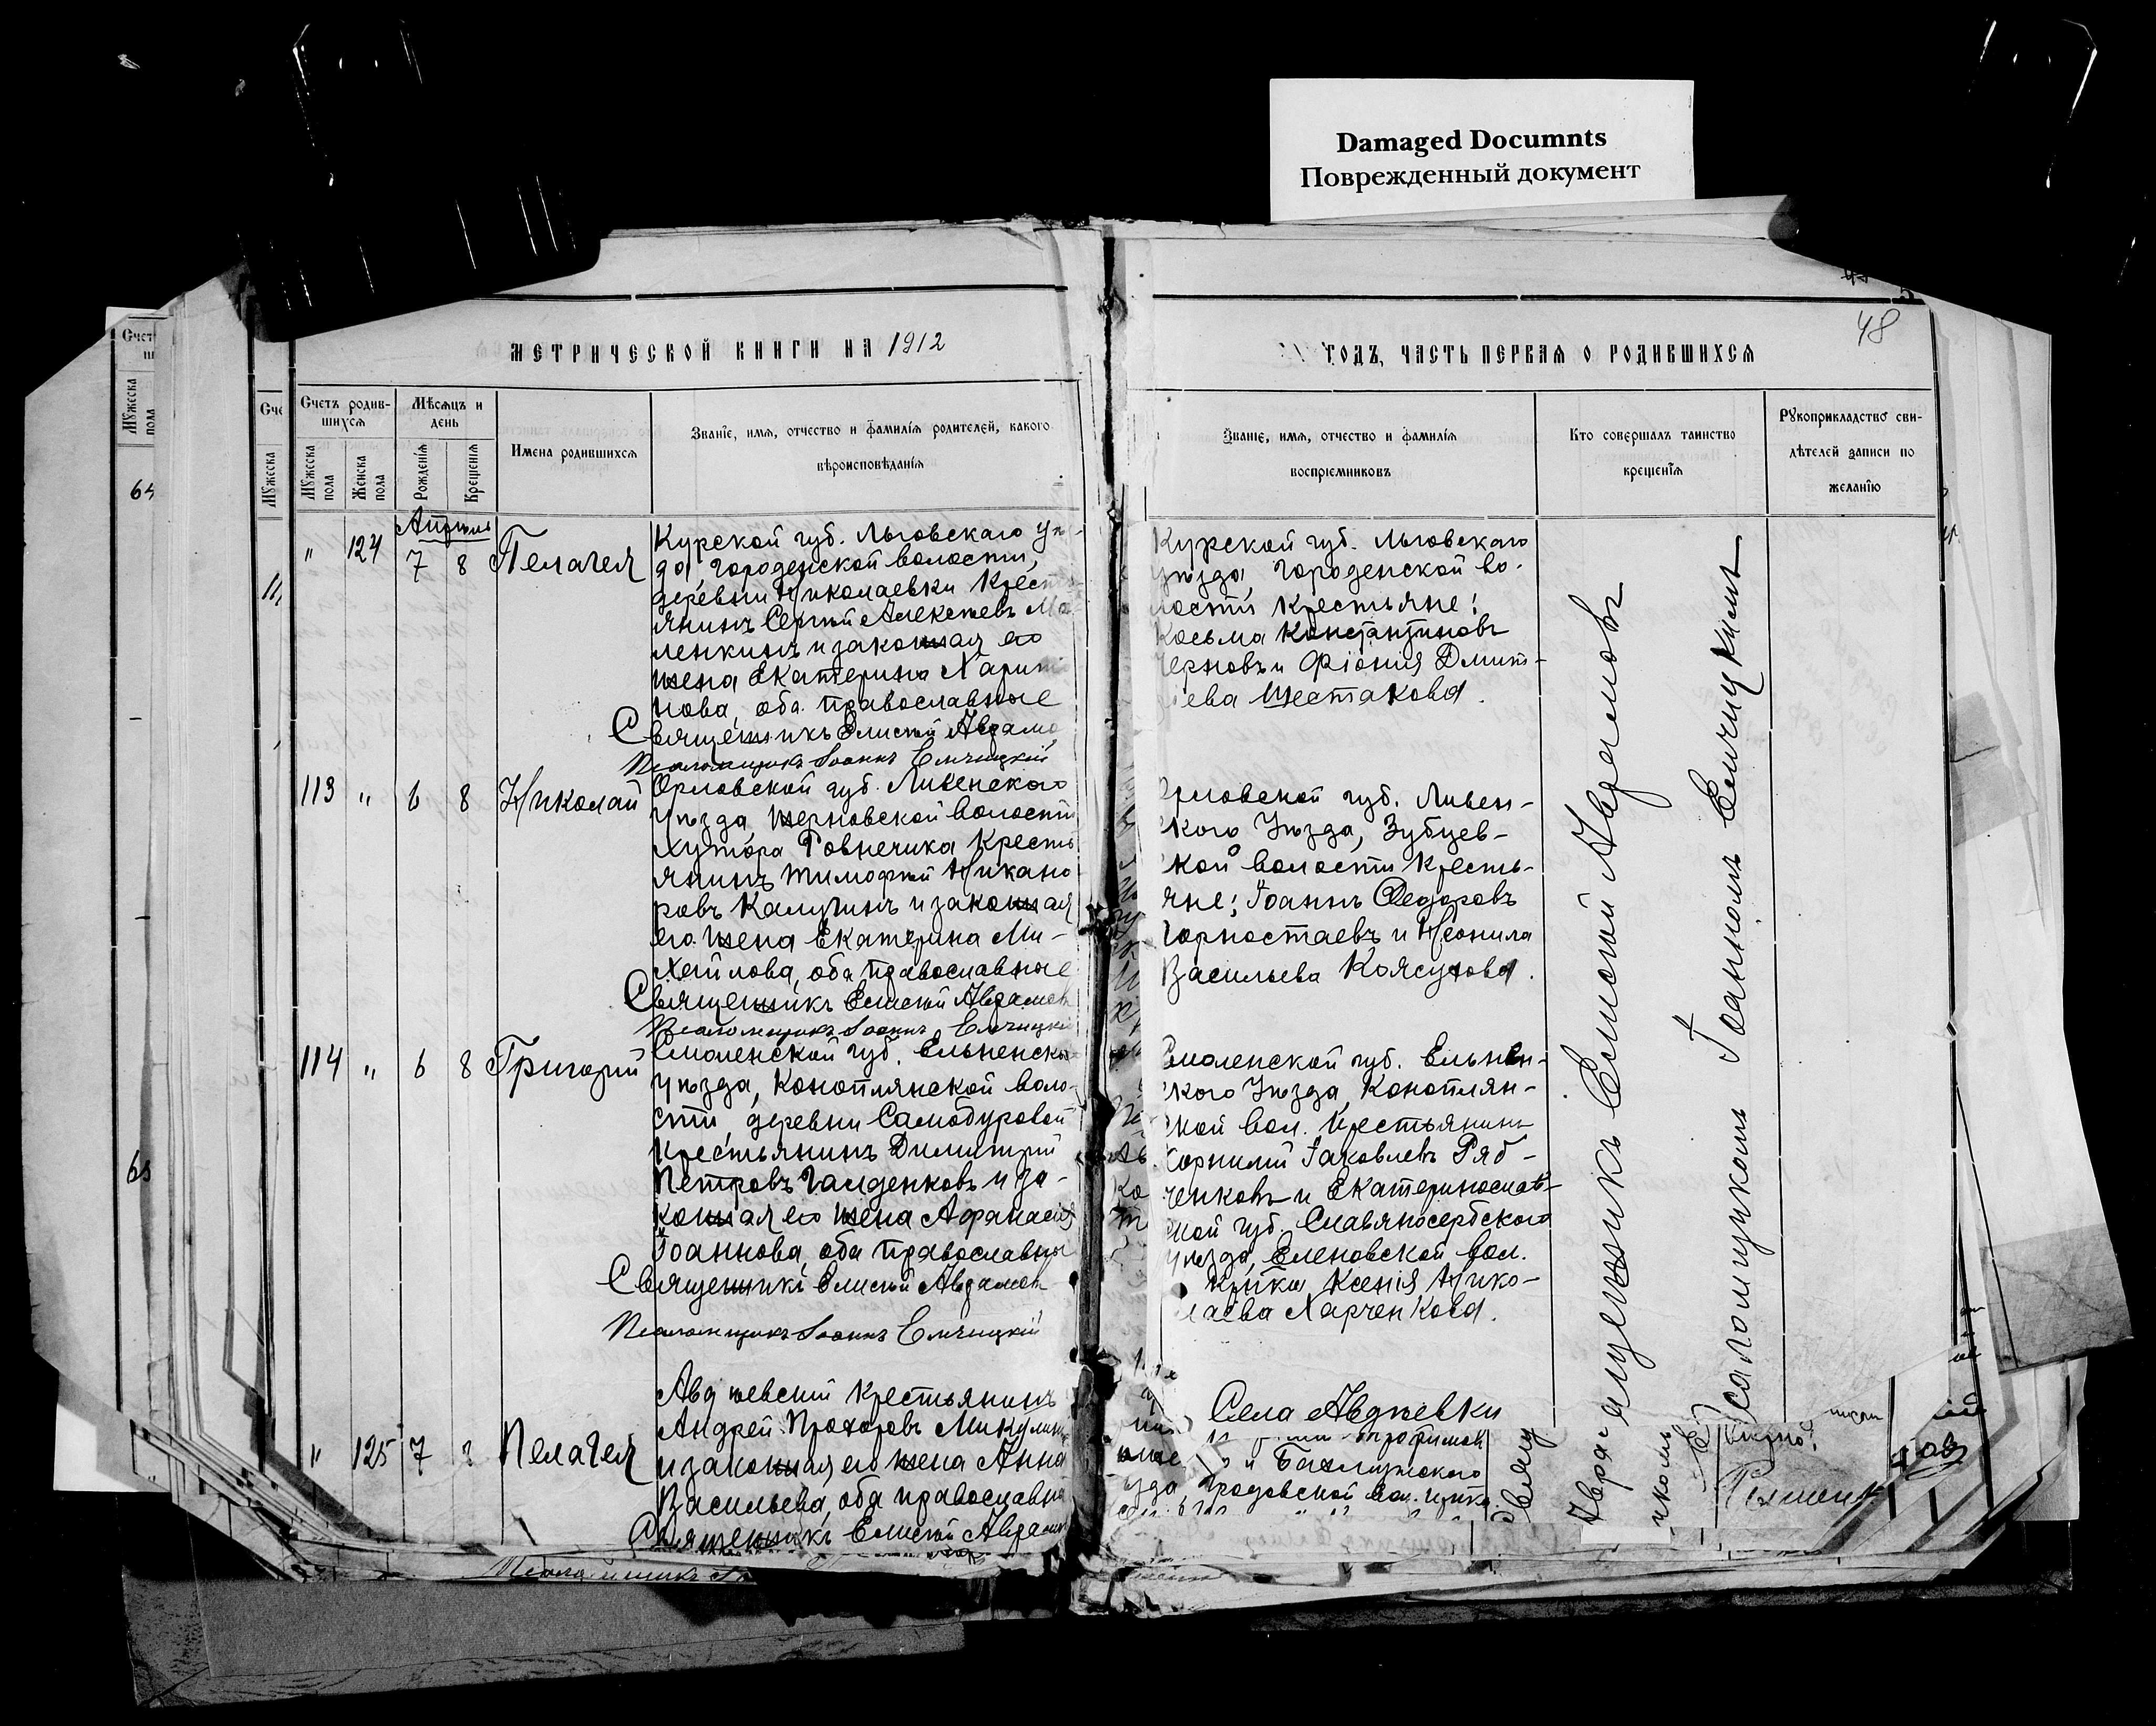 Damaged Documnts
Поврежденный документ
48
МЕТРИЧЕСКОЙ КНИГИ НА 1912
ГОДЪ, ЧАСТЬ ПЕРВАЯ О РОДИВШИХСЯ
Счетъ родив-
шихся
Мужеска пола
Женска пола
Мѣсяцъ и
день
Рожденія
Крещенія
Имена родившихся
Званіе, имя, отчество и фамилія родителей, какого
вѣроисповѣданія
Званіе, имя, отчество и фамилія
воспріемниковъ
Кто совершалъ таинство
крещенія
Рукоприкладство сви-
дѣтелей записи по
желанію
Апрѣль
" 124 7 8 Пелагея
Курской губ. Льговскаго уѣ-
да, Городенской волости,
деревни Николаевки Крест
янинъ Сергѣй Алексѣевъ Ма
ленкинъ и законная его
жена Екатерина Харит
нова, оба православные
Священникъ Елисей Аврамо
Псаломщикъ Іоаннъ Елчицкій
Курской губ. Льговскаго
уѣзда, Городенской во-
лости Крестьяне:
Косьма Константиновъ
Черновъ и Фіонія Дмит-
ріева Шестакова.
113 " 6 8 Николай
Орловской губ. Ливенскаго
уѣзда, Черновской волости
Хутора Ровнечика Кресть
янинъ Тимофей Никано
ровъ Калугинъ и законная
его жена Екатерина Ми-
хайлова, оба православные
Священникъ Елисей Аврамов
Псаломщикъ Іоаннъ Елчицкій
Орловской губ. Ливен-
скаго Уѣзда, Зубцев-
ской волости Кресть-
яне: Іоаннъ Ѳедоровъ
Горностаевъ и Неонила
Васильева Колсукова.
114 " 6 8 Григорій
Смоленской губ. Ельненска
уѣзда, Коноплянской воло-
сти, деревни Самодуровой
Крестьянинъ Димитрій
Петровъ Галденковъ и за-
конная его жена Афанасія
Іоаннова, оба православны
Священникъ Елисей Аврамовъ
Псаломщикъ Іоаннъ Елчицкій
Смоленской губ. Ельнен-
скаго Уѣзда, Коноплян-
ской вол. Крестьянинъ
Корнилій Іаковлевъ Ряб-
ченковъ и Екатеринослав-
ской губ. Славяносербскаго
уѣзда, Еленовской вол.
Ксенія Нико-
лаева Харченкова.
" 125 7 8 Пелагея
Авдѣевскій Крестьянинъ
Андрей Прохоровъ Микулинъ
и законная его жена Анна
Васильева, оба православны
Священникъ Елисей Аврамов
Села Авдѣевки
и Бахмутскаго
Градовской вол.
Священникъ Елисей Аврамовъ
Псаломщикомъ Іоанномъ Елчицкимъ